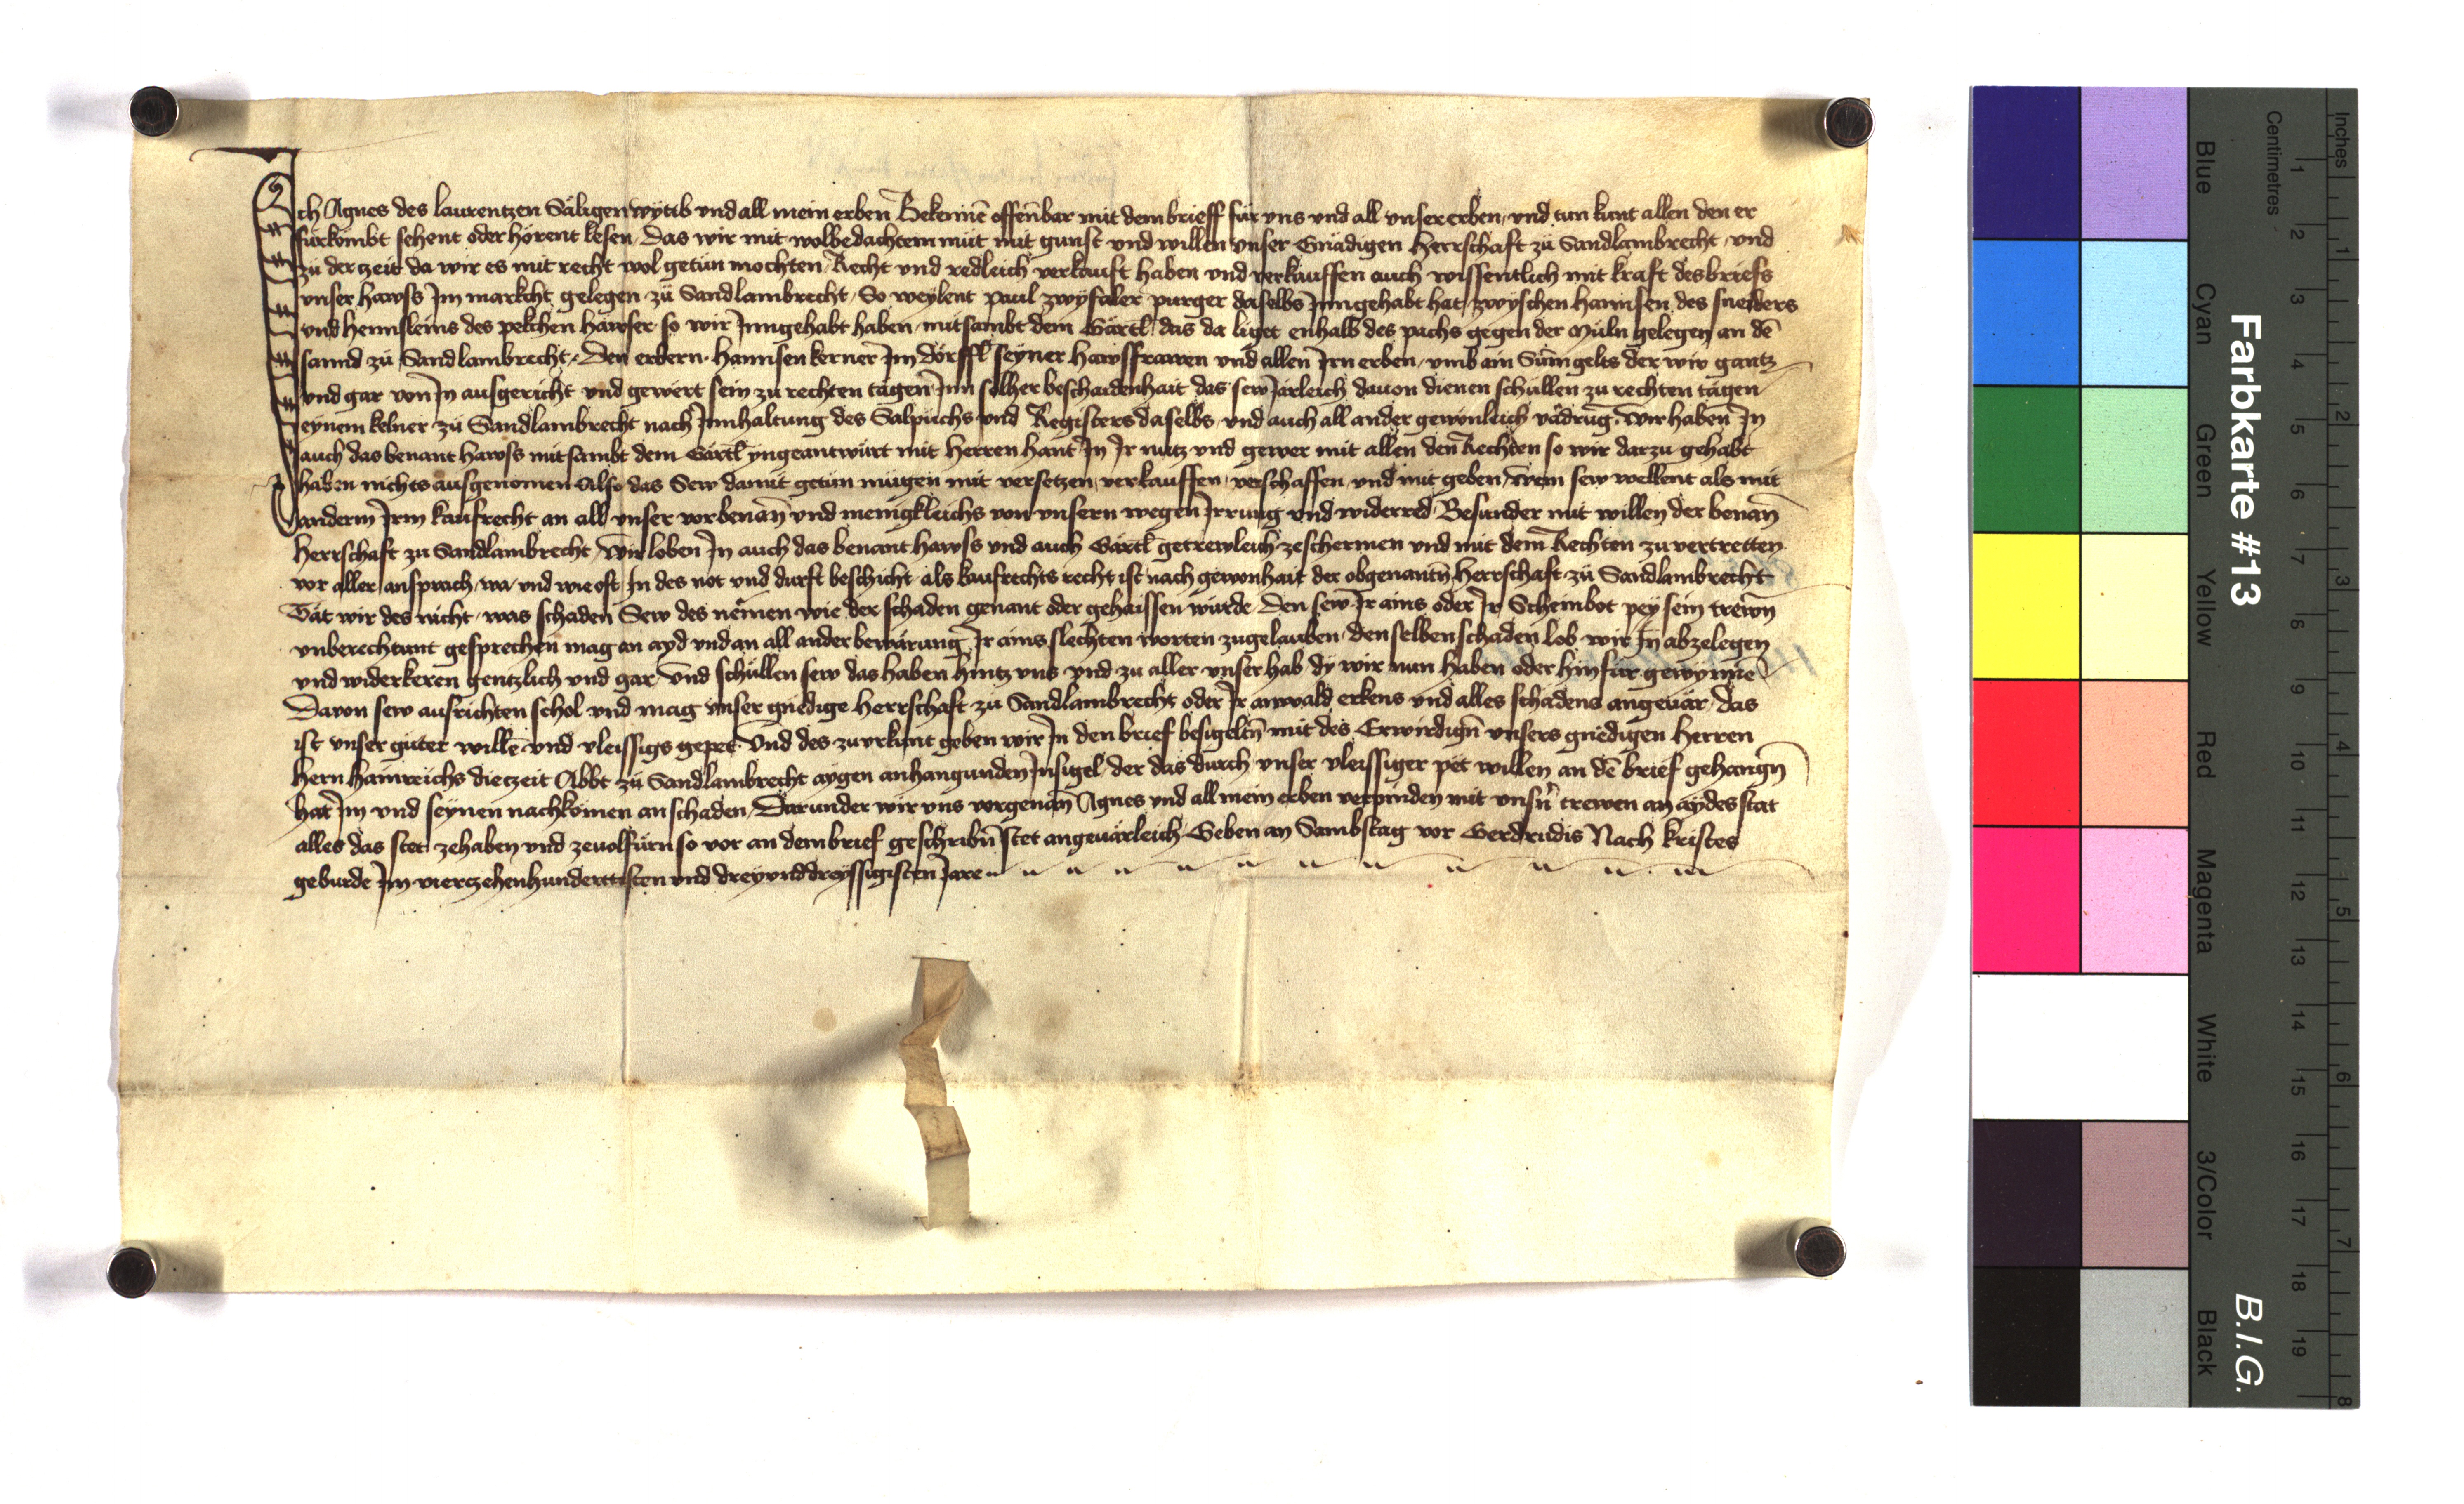 Ich Agnes des laurentzen Säligen wytib vnd all mein erben Bekennē offenbar mit dem brieff für vns vnd all vnser erben vnd tun kunt allen den er
fürkömbt sehent oder hörent lesen Das wir mit wolbedachtem müt mit gunst vnd willen vnser Gnädigen Herrschaft zü Sandlambrecht vnd
zü der zeit da wir es mit recht wol getün mochten Recht vnd redleich verkauft haben vnd verkauffen auch wissentlich mit kraft des briefs
vnser hawss Im markcht gelegen zü Sandlambrecht So weylent paul zwyfaler purger daselbs Inngehabt hat zwyschen hannsen des sneiders
vnd hennsleins des pelchen häwser so wir Inngehabt haben mitsambt dem Gärtl das da liget enhalb des pachs gegen der Müln gelegen an dē
sannd zü Sandlambrecht Den erbern hannsen kerner Im dörffl seyner hawsfrawen vnd allen Irn erben vmb ain Sum̄ gelts der wir gantz
vnd gar von In ausgericht vnd gewert sein zu rechten tägen Inn solher beschaidenhait das sew Järleich dauon dienen schüllen zu rechten tägen
eynem kelner zü Sandlambrecht nach Innhaltung des Salpüchs vnd Registers daselbs vnd auch all ander gewonleich vadrūg Wir haben In
auch das benant hawss mitsambt dem Gärtl yngeantwürt mit herren hant In Ir nutz vnd gewer mit allen den Rechten so wir darzu gehabt
haben nichts ausgenomen Also das Sew damit getün mügen mit versetzen verkauffen verschaffen vnd mit geben wem sew wellent als mit
anderm Irm kaufrecht an all vnser vorbenan̄ vnd menigkleichs von vnsern wegen Irrung vnd widerred Besunder mit willen der benan̄
herrschaft zu Sandlambrecht Wir loben In auch das benant hawss vnd auch Gärtl getrewleich zeschermen vnd mit dem Rechten zuvertretten
vor aller ansprach wa vnd wie oft In des not vnd durft beschicht als kaufrechts recht ist nach gewonhait der obgenantn̄ herrschaft zü Sandlambrecht
Tät wir des nicht was schaden Sew des nëmen wie der schaden genant oder gehaissen würde Den sew Ir ains oder Ir Scheinbot pey sein trewn̄
vnberechtunt gesprechen mag an ayd vnd an all ander bewärung Ir ains slechten worten zugelauben denselben schaden lob wir In abzelegen
vnd widerkeren gentzlich vnd gar Vnd schüllen sew das haben hintz vns vnd zu aller vnser hab dy wir nun haben oder hinfür gewynnē
Davon sew ausrichten schol vnd mag vnser gnedige herrschaft zü Sandlambrecht oder Ir anwald erkens vnd alles schadens angeuär das
ist vnser güter willē vnd vleissigs gepet Vnd des zuvrkunt geben wir In den brief besigeltn̄ mit des Erwirdign̄ vnsers gnedigen herren
hern hainreichs die tzeit Abbt zü Sandlambrecht aygen anhangunden Insigel der das durch vnser vleissiger pet willen an dē brief gehangn̄
hat Im vnd seynen nachkömen an schaden Darunder wir vns vorgenan̄ Agnes vnd all mein erben verpinden mit vnsn̄ trewen an aydes stat
alles das stet zehaben vnd zeuolfürn so vor an dem brief geschribn̄ stet angeuärleich Geben an Sambstag vor Gerdrudis Nach kristes
geburde Im vierczehenhundertisten vnd dreyvnddreyssigisten Jare
Farbkarte #13
B.I.G.
Blue
Cyan
Green
Yellow
Red
Magenta
White
3/Color
Black
Centimetres
1 2 3 4 5 6 7 8 9 10 11 12 13 14 15 16 17 18 19
Inches
1 2 3 4 5 6 7 8